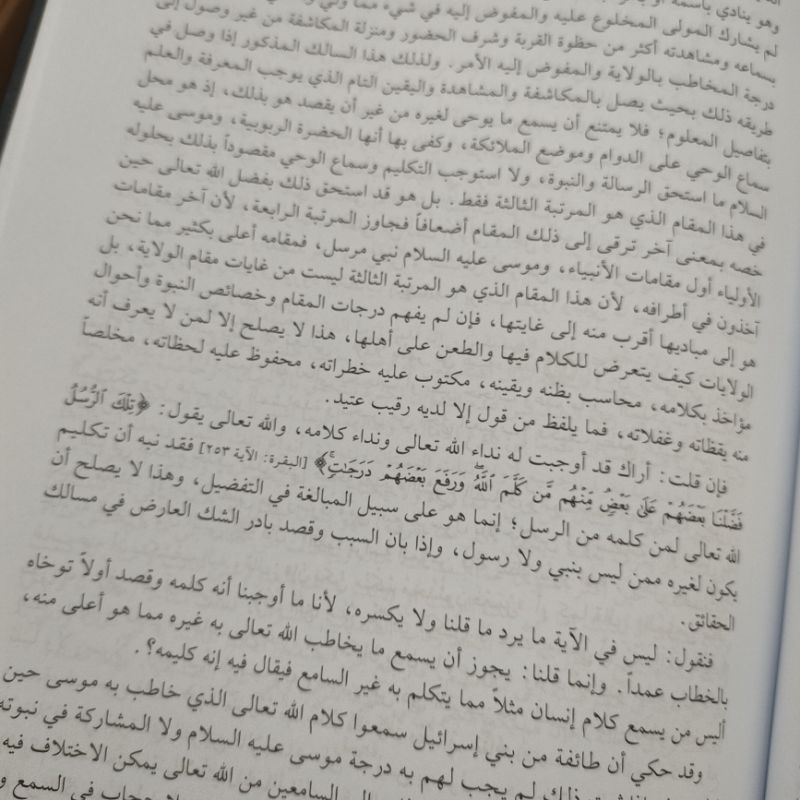 وهو ينادي باسمه أو
لم يشارك المولى المخلوع عليه والمفوض إليه في شيء مما ولي
بسماعه ومشاهدته أكثر من حظوة القربة وشرف الحضور ومنزلة المكاشفة من غير وصول إلى
درجة المخاطب بالولاية والمفوض إليه الأمر. ولذلك هذا السالك المذكور إذا وصل في
طريقه ذلك بحيث يصل بالمكاشفة والمشاهدة واليقين التام الذي يوجب المعرفة والعلم
بتفاصيل المعلوم؛ فلا يمتنع أن يسمع ما يوحى لغيره من غير أن يقصد هو بذلك، إذ هو محل
سماع الوحي على الدوام وموضع الملائكة، وكفى بها أنها الحضرة الربوبية، وموسى عليه
السلام ما استحق الرسالة والنبوة، ولا استوجب التكليم وسماع الوحي مقصوداً بذلك بحلوله
في هذا المقام الذي هو المرتبة الثالثة فقط. بل هو قد استحق ذلك بفضل الله تعالى حين
خصه بمعنى آخر ترقى إلى ذلك المقام أضعافاً فجاوز المرتبة الرابعة، لأن آخر مقامات
الأولياء أول مقامات الأنبياء، وموسى عليه السلام نبي مرسل، فمقامه أعلى بكثير مما نحن
آخذون في أطرافه، لأن هذا المقام الذي هو المرتبة الثالثة ليست من غايات مقام الولاية، بل
هو إلى مباديها أقرب منه إلى غايتها، فإن لم يفهم درجات المقام وخصائص النبوة وأحوال
الولايات كيف يتعرض للكلام فيها والطعن على أهلها، هذا لا يصلح إلا لمن لا يعرف أنه
مؤاخذ بكلامه، محاسب بظنه ويقينه، مكتوب عليه خطراته، محفوظ عليه لحظاته، مخلصاً
منه يقظاته وغفلاته، فما يلفظ من قول إلا لديه رقيب عتيد.
فإن قلت: أراك قد أوجبت له نداء الله تعالى ونداء كلامه، والله تعالى يقول: ﴿تِلْكَ ٱلرُّسُلُ
فَضَّلْنَا بَعْضَهُمْ عَلَىٰ بَعْضٍ مِّنْهُم مَّن كَلَّمَ ٱللَّهُ وَرَفَعَ بَعْضَهُمْ دَرَجَٰتٍ﴾ [البقرة: الآية ٢٥٣] فقد نبه أن تكليم
الله تعالى لمن كلمه من الرسل؛ إنما هو على سبيل المبالغة في التفضيل، وهذا لا يصلح أن
يكون لغيره ممن ليس بنبي ولا رسول، وإذا بان السبب وقصد بادر الشك العارض في مسالك
الحقائق.
فنقول: ليس في الآية ما يرد ما قلنا ولا يكسره، لأنا ما أوجبنا أنه كلمه وقصد أولاً توخاه
بالخطاب عمداً. وإنما قلنا: يجوز أن يسمع ما يخاطب الله تعالى به غيره مما هو أعلى منه،
أليس من يسمع كلام إنسان مثلاً مما يتكلم به غير السامع فيقال فيه إنه كليمه؟.
وقد حكي أن طائفة من بني إسرائيل سمعوا كلام الله تعالى الذي خاطب به موسى حين
ذلك لم يجب لهم به درجة موسى عليه السلام ولا المشاركة في نبوته
السامعين من الله تعالى يمكن الاختلاف فيه
حجاب في السمع